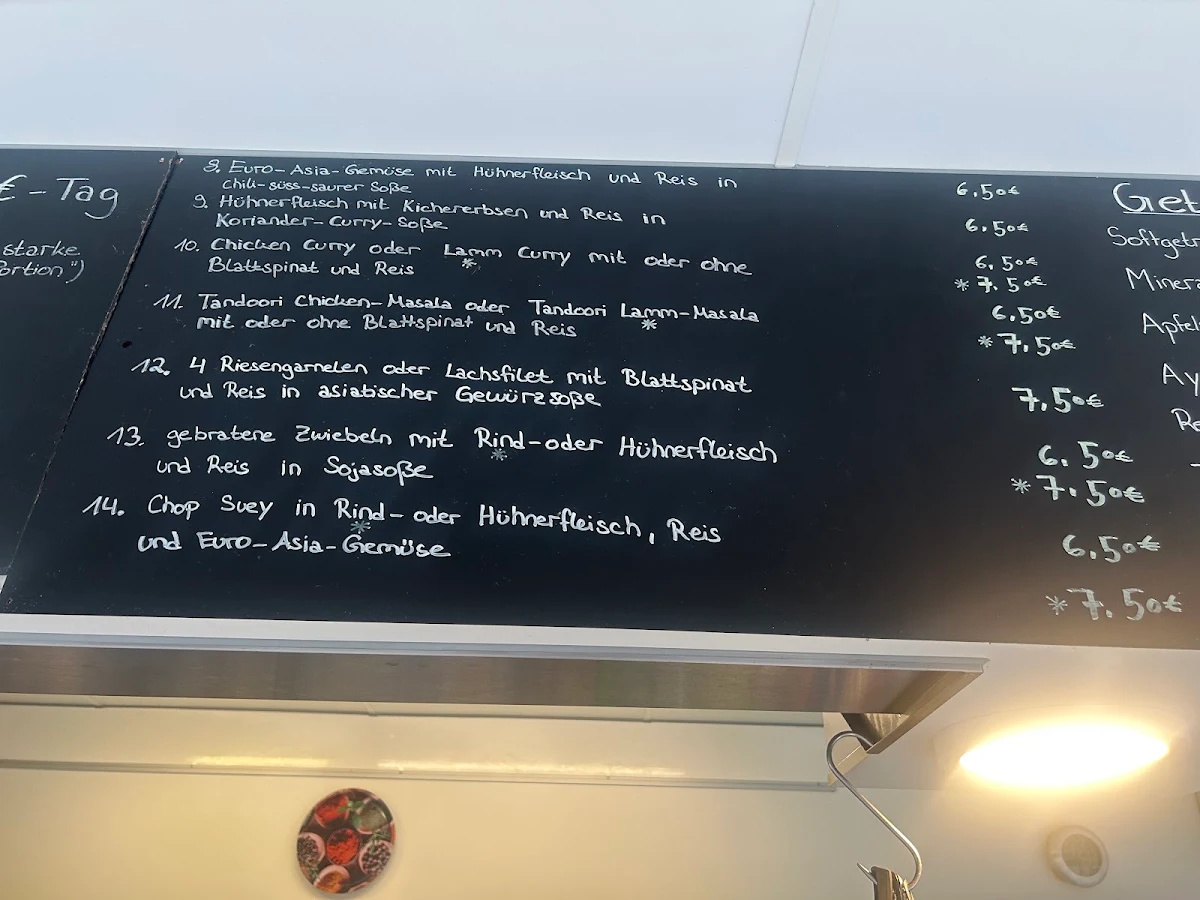 €-Tag
starke
Portion")
8. Euro-Asia-Gemüse mit Hühnerfleisch und Reis in 6,50€
chili-süss-saurer Soße
9. Hühnerfleisch mit Kichererbsen und Reis in 6,50€
Koriander-Curry-Soße
10. Chicken Curry oder Lamm Curry mit oder ohne 6,50€
* 
Blattspinat und Reis *7,50€
11. Tandoori Chicken-Masala oder Tandoori Lamm-Masala 6,50€
*
mit oder ohne Blattspinat und Reis *7,50€
12. 4 Riesengarnelen oder Lachsfilet mit Blattspinat 7,50€
und Reis in asiatischer Gewürzsoße
13. gebratene Zwiebeln mit Rind-oder Hühnerfleisch 6,50€
*
und Reis in Sojasoße *7,50€
14. Chop Suey in Rind-oder Hühnerfleisch, Reis 6,50€
*
und Euro-Asia-Gemüse *7,50€
Get
Softgetr
Minera
Apfel
Ay
Re